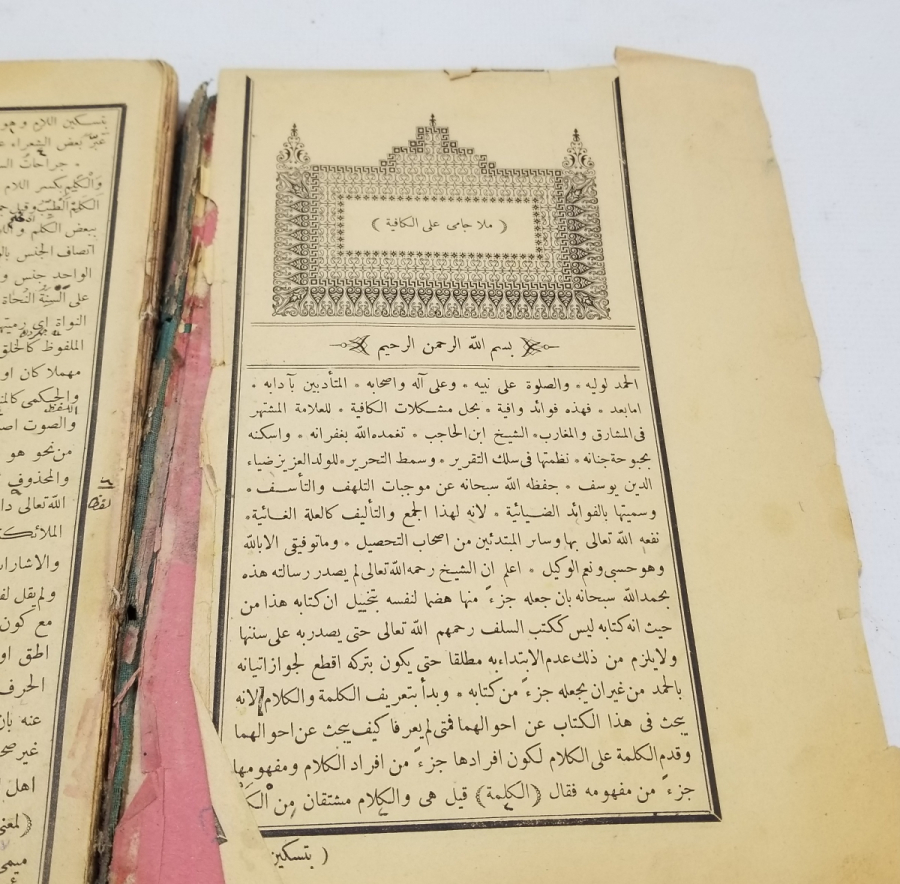 ( ملا جامى على الكافية )
بسم الله الرحمن الرحيم
الحمد لوليه * والصلوة على نبيه * وعلى آله واصحابه * المتأدبين بآدابه *
امابعد * فهذه فوائد وافية * بحل مشكلات الكافية * للعلامة المشتهر
فى المشارق والمغارب * الشيخ ابن الحاجب * تغمده الله بغفرانه * واسكنه
بحبوحة جنانه * نظمتها فى سلك التقرير * وسمط التحرير * للولد العزيز ضياء
الدين يوسف * حفظه الله سبحانه عن موجبات التلهف والتأسف *
وسميتها بالفوائد الضيائية * لانه لهذا الجمع والتأليف كالعلة الغائية *
نفعه الله تعالى بها وسائر المبتدئين من اصحاب التحصيل * وماتوفيقى الابالله
وهو حسبى ونعم الوكيل * اعلم ان الشيخ رحمه الله تعالى لم يصدر رسالته هذه
بحمد الله سبحانه بان جعله جزء منها هضما لنفسه بتخييل ان كتابه هذا من
حيث انه كتابه ليس ككتب السلف رحمهم الله تعالى حتى يصدر به على سننها
ولايلزم من ذلك عدم الابتداء به مطلقا حتى يكون بتركه اقطع لجواز اتيانه
بالحمد من غيران يجعله جزء من كتابه * وبدأ بتعريف الكلمة والكلام لانه
يبحث فى هذا الكتاب عن احوالهما فمتى لم يعرفا كيف يبحث عن احوالهما
وقدم الكلمة على الكلام لكون افرادها جزء من افراد الكلام ومفهومها
جزء من مفهومه فقال (الكلمة) قيل هى والكلام مشتقان من الكلم
( بتسكين
بتسكين اللام وهو
عبر بعض الشعراء
جراحات
والكلم بكسر اللام
الكلم الطيب وقيل
ببعض الكلم
اتصاف الجنس
الواحد جنس
على السنة النحاة
النواة اى رميتها
الملفوظ كالخلق
مهملا كان او
والحكمى
والصوت
من نحو هو
والمحذوف
الله تعالى
الملائكة
والاشارات
ولم يقل
مع كون
اطق او
الحرف
عنه بان
اهل